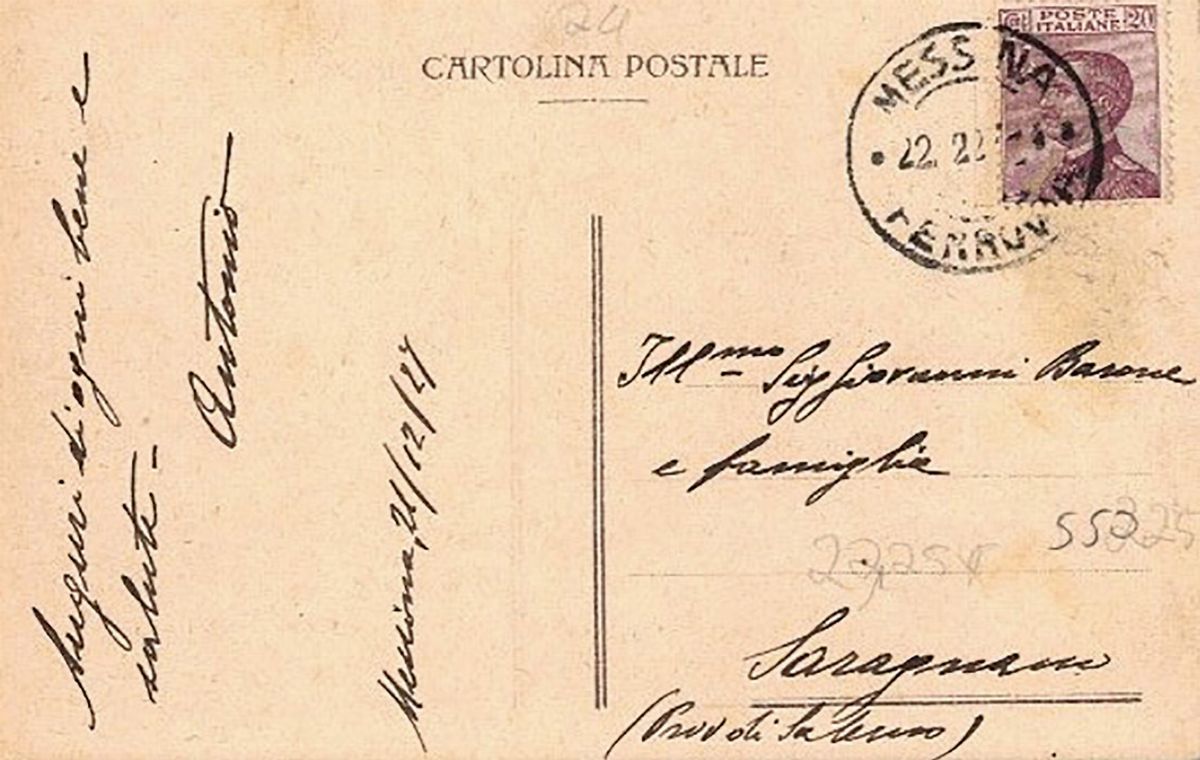 24
CARTOLINA POSTALE
POSTE
ITALIANE
20
MESSINA
FERROVIA
Auguri di ogni bene e
salute -
Antonio
Messina, 21/12/27
Ill.mo Sig Giovanni Barone
e famiglia
553225
(Prov di Salerno)